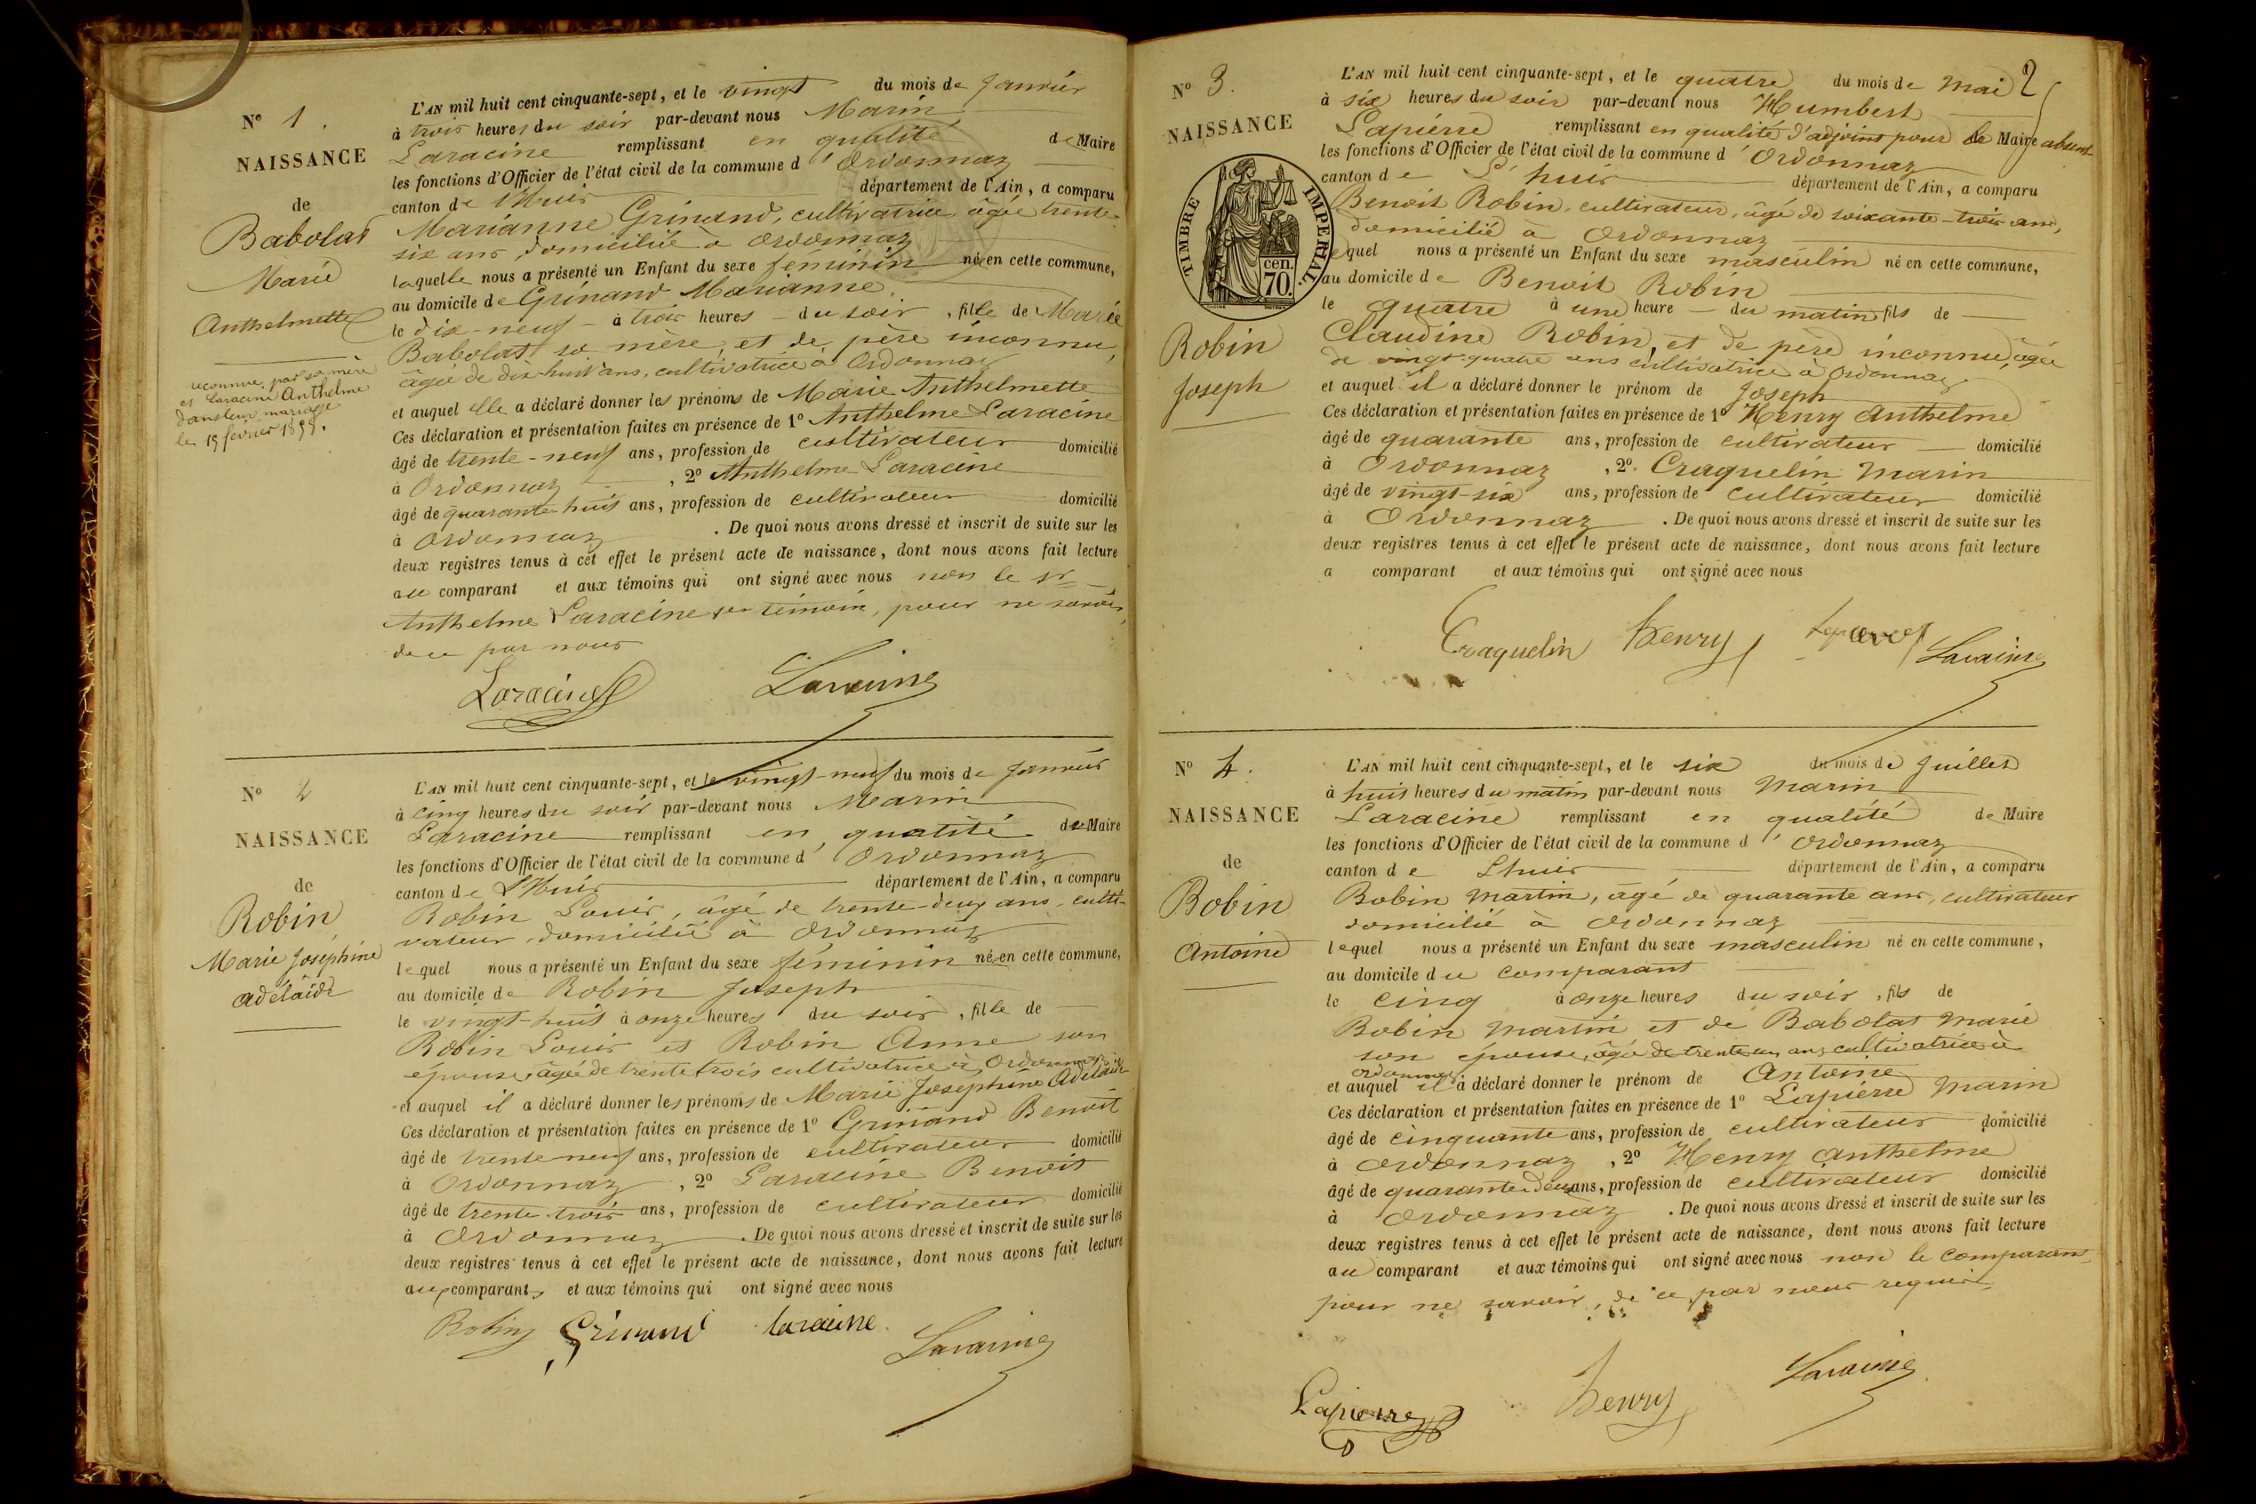 N° 1.
NAISSANCE
de
Babolat
Marie
Anthelmette
reconnue par sa mère
et Laracine Anthelme
dans leur mariage
le 19 février 1859.
L'AN mil huit cent cinquante-sept, et le vingt du mois de Janvier
à trois heures du soir par-devant nous Marin
Laracine remplissant en qualité de Maire
les fonctions d'Officier de l'état civil de la commune d'Ordonnaz
canton de L'Huis département de l'Ain, a comparu
Marianne Grinand, cultivatrice âgée trente-
six ans, domiciliée à Ordonnaz
laquelle nous a présenté un Enfant du sexe féminin né en cette commune,
au domicile de Grinand Marianne.
le dix-neuf à trois heures du soir, fille de Marie
Babolat sa mère, et de père inconnu,
âgée de dix huit ans, cultivatrice à Ordonnaz
et auquel elle a déclaré donner les prénoms de Marie Anthelmette
Ces déclaration et présentation faites en présence de 1° Anthelme Laracine
âgé de trente-neuf ans, profession de cultivateur domicilié
à Ordonnaz, 2° Anthelme Laracine
âgé de quarante-huit ans, profession de cultivateur domicilié
à Ordonnaz. De quoi nous avons dressé et inscrit de suite sur les
deux registres tenus à cet effet le présent acte de naissance, dont nous avons fait lecture
au comparant et aux témoins qui ont signé avec nous non le sr
Anthelme Laracine 1er témoin, pour ne savoir,
de ce par nous
Laracine Laracine
N° 2
NAISSANCE
de
Robin
Marie Joséphine
Adélaïde
L'AN mil huit cent cinquante-sept, et le vingt-neuf du mois de Janvier
à cinq heures du soir par-devant nous Marin
Laracine remplissant en qualité de Maire
les fonctions d'Officier de l'état civil de la commune d'Ordonnaz
canton de L'Huis département de l'Ain, a comparu
Robin Louis, âgé de trente-deux ans, culti-
vateur, domicilié à Ordonnaz
lequel nous a présenté un Enfant du sexe féminin né en cette commune,
au domicile de Robin Joseph
le vingt-huit à onze heures du soir, fille de
Robin Louis et Robin Anne son
épouse, âgée de trente trois cultivatrice à Ordonnaz
et auquel il a déclaré donner les prénoms de Marie Joséphine Adélaïde
Ces déclaration et présentation faites en présence de 1° Grinand Benoit
âgé de trente neuf ans, profession de cultivateur domicilié
à Ordonnaz, 2° Laracine Benoit
âgé de trente trois ans, profession de cultivateur domicilié
à Ordonnaz. De quoi nous avons dressé et inscrit de suite sur les
deux registres tenus à cet effet le présent acte de naissance, dont nous avons fait lecture
aux comparants et aux témoins qui ont signé avec nous
Robin Grinand Laracine Laracine
2
N° 3.
NAISSANCE
TIMBRE IMPERIAL.
cen.
70.
Robin
Joseph
L'AN mil huit cent cinquante-sept, et le quatre du mois de Mai
à six heures du soir par-devant nous Humbert
Lapierre remplissant en qualité d'adjoint pour le Maire absent
les fonctions d'Officier de l'état civil de la commune d'Ordonnaz
canton de L'huis département de l'Ain, a comparu
Benoit Robin, cultivateur, âgé de soixante-trois ans,
domicilié à Ordonnaz
lequel nous a présenté un Enfant du sexe masculin né en cette commune,
au domicile de Benoit Robin
le quatre à une heure du matin fils de
Claudine Robin, et de père inconnu, âgée
de vingt quatre ans cultivatrice à Ordonnaz
et auquel il a déclaré donner le prénom de Joseph
Ces déclaration et présentation faites en présence de 1° Henry Anthelme
âgé de quarante ans, profession de cultivateur domicilié
à Ordonnaz, 2° Craquelin Marin
âgé de vingt-six ans, profession de cultivateur domicilié
à Ordonnaz. De quoi nous avons dressé et inscrit de suite sur les
deux registres tenus à cet effet le présent acte de naissance, dont nous avons fait lecture
a comparant et aux témoins qui ont signé avec nous
Craquelin henry Laracine
N° 4.
NAISSANCE
de
Robin
Antoine
L'AN mil huit cent cinquante-sept, et le six du mois de Juillet
à huit heures du matin par-devant nous Marin
Laracine remplissant en qualité de Maire
les fonctions d'Officier de l'état civil de la commune d'Ordonnaz
canton de Lhuis département de l'Ain, a comparu
Robin Martin, âgé de quarante ans, cultivateur
domicilié à Ordonnaz
lequel nous a présenté un Enfant du sexe masculin né en cette commune,
au domicile du comparant
le cinq à onze heures du soir, fils de
Robin Martin et de Babolat Marie
son épouse, âgée de trente un ans cultivatrice à
Ordonnaz
et auquel il a déclaré donner le prénom de Antoine
Ces déclaration et présentation faites en présence de 1° Lapierre Marin
âgé de cinquante ans, profession de cultivateur domicilié
à Ordonnaz, 2° Henry Anthelme
âgé de quarante deux ans, profession de cultivateur domicilié
à Ordonnaz. De quoi nous avons dressé et inscrit de suite sur les
deux registres tenus à cet effet le présent acte de naissance, dont nous avons fait lecture
au comparant et aux témoins qui ont signé avec nous non le comparant
pour ne savoir, de ce par nous requis.
Lapierre henry Laracine